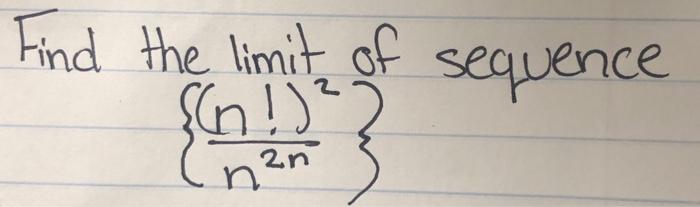 Find the limit of sequence
{(n!)²/n²ⁿ}